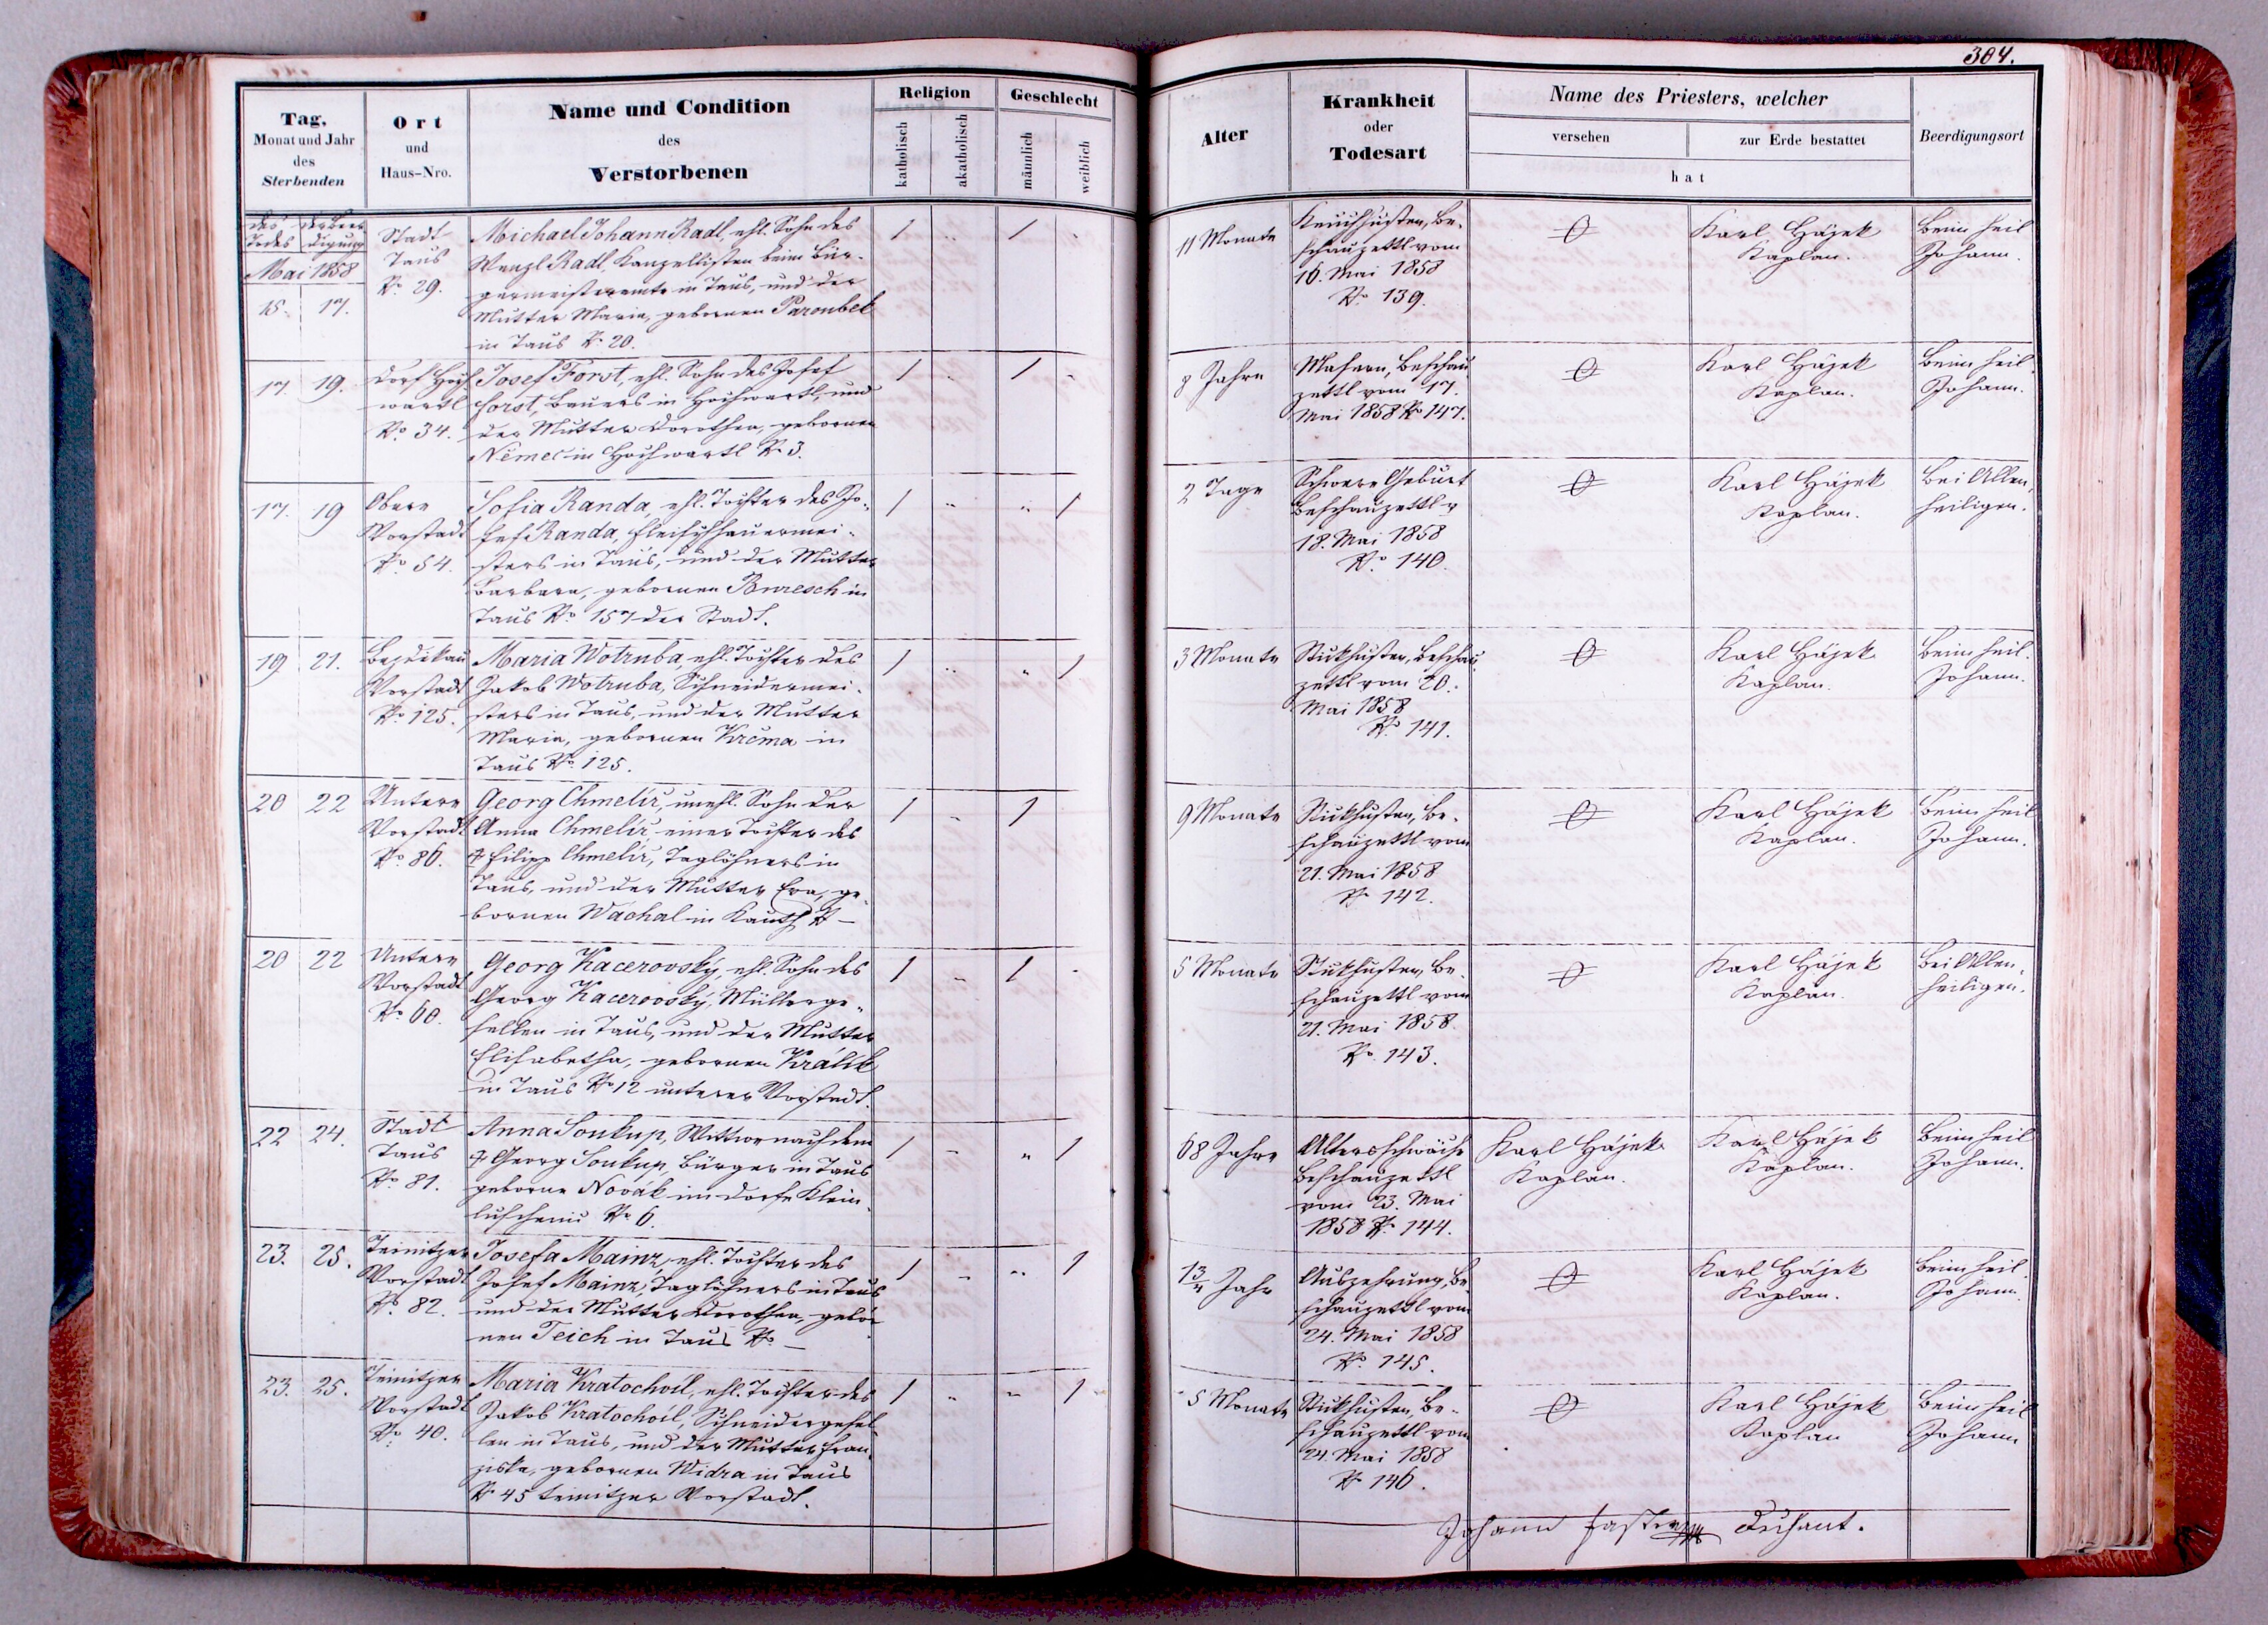 304.
Tag,
Monat und Jahr
des
Sterbenden
Ort
und
Haus-Nro.
Name und Condition
des
Verstorbenen
Religion
katholisch
akatholisch
Geschlecht
männlich
weiblich
Alter
Krankheit
oder
Todesart
Name des Priesters, welcher
versehen
zur Erde bestattet
hat
Beerdigungsort
des Todes
der Beerdigung
Mai 1858
15. 17.
Stadt
Taus
No. 29.
Michael Johann Radl, ehl. Sohn des
Wenzl Radl, Kanzellisten beim Bür-
germeisteramte in Taus, und der
Mutter Maria, gebornen Paroubek
in Taus No 20.
1 .. 1 .
11 Monate
Keuchhusten, Be-
schauzettl vom
16. Mai 1858
No. 139.
Karl Hájek
Kaplan.
Beim heil
Johann.
17. 19.
Dorf Hoch
wartl
No. 34.
Josef Forst, ehl. Sohn des Josef
Forst, Bauers in Hochwartl, und
der Mutter Dorothea, gebornen
Němec in Hochwartl No 3.
1 .. 1 .
8 Jahre
Masern, Beschau
zettl vom 17.
Mai 1858 No 147.
Karl Hájek
Kaplan.
Beim heil.
Johann.
17. 19
Obere
Vorstadt
No. 54.
Sofia Randa, ehl. Tochter des Jo-
sef Randa, Fleischhauermei-
sters in Taus, und der Mutter
Barbara, gebornen Buresch in
Taus No 157 der Stadt.
1 .. .. 1
2 Tage
Schwere Geburt
Beschauzettl v
18. Mai 1858
No. 140.
Karl Hájek
Kaplan.
Bei Allen
heiligen.
19 21.
Bezděkau
Vorstadt
No. 125.
Maria Wotruba, ehl. Tochter des
Jakob Wotruba, Schneidermei-
sters in Taus, und der Mutter
Maria, gebornen Krčma in
Taus No 125.
1 .. .. 1
3 Monate
Stickhusten, Beschau
zettl vom 20.
Mai 1858
No. 141.
Karl Hájek
Kaplan.
Beim heil.
Johann.
20 22
Untere
Vorstadt
No. 86.
Georg Chmelíř, unehl. Sohn der
Anna Chmelíř einer Tochter des
† Filipp Chmelíř, Taglöhners in
Taus, und der Mutter Eva, ge-
bornen Wáchal in Kauth No —
1 .. 1
9 Monate
Stickhusten, Be-
schauzettl vom
21. Mai 1858
No 142.
Karl Hájek
Kaplan.
Beim heil
Johann.
20 22
Untere
Vorstadt
No 60.
Georg Kacerovský, ehl. Sohn des
Georg Kacerovský, Müllerge-
sellen in Taus, und der Mutter
Elisabetha, gebornen Králík
in Taus No 12 unterer Vorstadt.
1 .. 1 .
5 Monate
Stickhusten, Be-
schauzettl vom
21. Mai 1858.
No. 143.
Karl Hájek
Kaplan.
Bei Allen
heiligen.
22 24.
Stadt
Taus
No. 81.
Anna Soukup, Wittwe nach dem
† Georg Soukup, Bürger in Taus
geborne Novák im Dorfe Klein-
No. 6.
1 .. .. 1
68 Jahre
Altersschwäche
Beschauzettl
vom 23. Mai
1858 No. 144.
Karl Hájek
Kaplan.
Karl Hájek
Kaplan.
Beim heil
Johann.
23. 25.
Teinitzer
Vorstadt
No. 82.
Josefa Mainz, ehl. Tochter des
Josef Mainz, Taglöhners in Taus
und der Mutter Dorothea, gebor-
nen Teich in Taus No —
1 .. .. 1
1 3/4 Jahr
Auszehrung, Be
schauzettl vom
24. Mai 1858
No. 145.
Karl Hájek
Kaplan.
Beim heil.
Johann.
23. 25.
Teinitzer
Vorstadt
No. 40.
Maria Kratochvil, ehl. Tochter des
Jakob Kratochvil, Schneidergesel-
len in Taus, und der Mutter Fran-
ziska, gebornen Widra in Taus
No 45 teinitzer Vorstadt.
1 .. .. 1
5 Monate
Stickhusten, Be-
schauzettl vom
24. Mai 1858
No 146.
Karl Hájek
Kaplan
Beim heil
Johann
Johann Dechant.